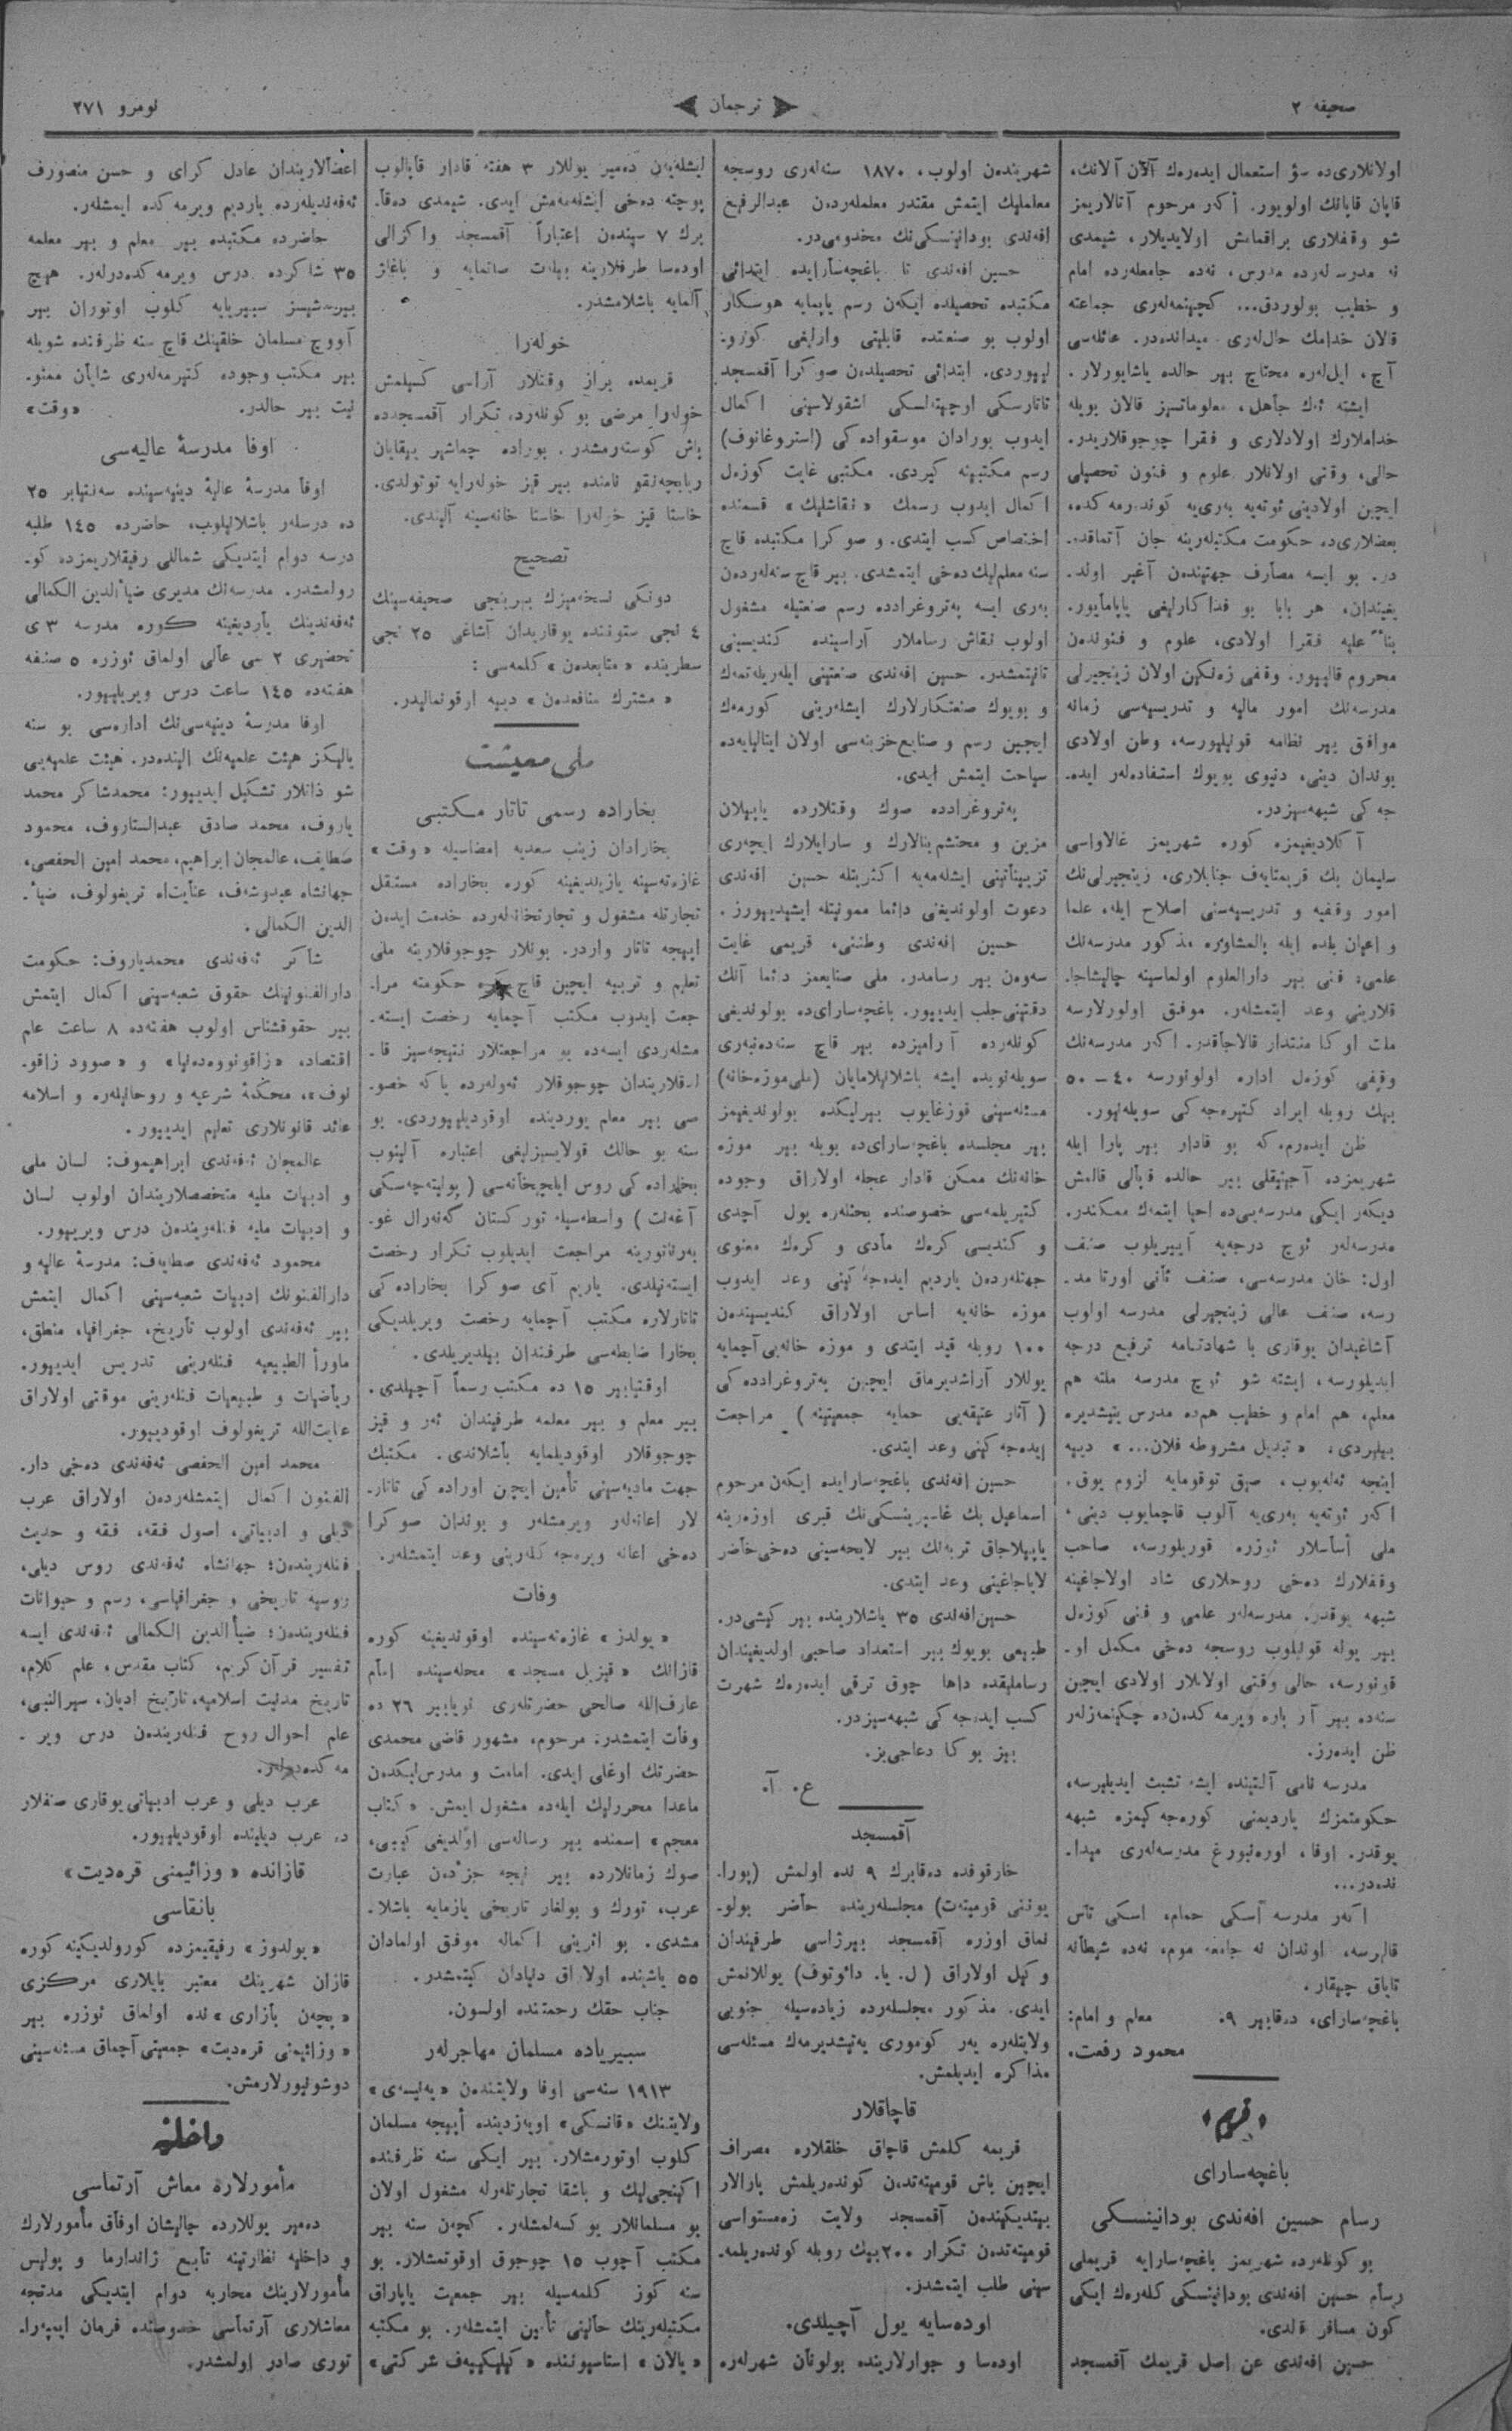 صحیفه ۲
ترجمان
نومرو ۲۷۱
اولانلاری‌ده سؤ استعمال ایده‌رەك آلان آلانك،
قاپان قاپانك اولویور. أكەر مرحوم آتالاریمز
شو وقفلاری براقمامش اولایدیلار، شیمدی
نه مدرسه‌لەرده مدرس، نەده جامعلەرده امام
و خطیب بولوردق...
قالان خدامك حال‌لەری میداندەدر. عائلەسی
آچ، ایل‌لەره محتاج بیر حالده یاشایورلار.
خداملارك اولادلاری و فقرا چوجوقلاریدر.
حالی، وقتی اولانلار علوم و فنون تحصیلی
ایچین اولادینی ئوتەیە بەری‌یە كوندرمەكدە،
بعضلاری‌ده حكومت مكتبلەرینە جان آتماقدە‌ـ
در. بو ایسه مصارف جهتیندن آغیر اولد‌ـ
یغیندان، هر بابا بو فداكارلیغی یاپامایور.
بناءً علیه فقرا اولادی، علوم و فنوندن
محروم قالیور. وقفی زەنكین اولان زینجیرلی
مدرسه‌نك امور مالیه و تدریسیه‌سی زمانه
موافق بیر نظامه قویلیورسه، وطن اولادی
بوندان دینی، دنیوی بویوك استفاده‌لەر ایده‌ـ
جه‌كی شبهه‌سیزدر.
آكلادیغیمزه كوره شهریمز غالاواسی
سلیمان بك قریمتایەف جنابلاری، زینجیرلی‌نك
امور وقفیه و تدریسیه‌سنی اصلاح ایله، علما
و اعیان بلده ایله بالمشاوره مذكور مدرسه‌نك
علمی، فنی بیر دارالعلوم اولماسینه چالیشاجا‌ـ
قلارینی وعد ایتمشلەر. موفق اولورلارسه
ملت اوكا منتدار قالاجاقدر. اكەر مدرسه‌نك
وقفی كوزەل اداره اولونورسه ۴۰ـ۵۰
بیك روبله ایراد كتیره‌جه‌كی سویله‌نیور.
ظن ایدەرم‌كه بو قادار بیر پارا ایله
شهریمزده آجینیقلی بیر حالده قپالی قالمش
دیكەر ایكی مدرسه‌یی‌ده احیا ایتمەك ممكندر.
مدرسه‌لەر ئوچ درجه‌یه آییریلوب صنف
اول: خان مدرسه‌سی، صنف ثانی اورتا مد‌ـ
رسه، صنف عالی زینجیرلی مدرسه اولوب
آشاغیدان یوقاری با شهادتنامه ترفیع درجه
ایدیلورسه، ایشته شو ئوچ مدرسه ملته هم
معلم، هم امام و خطیب هم‌ده مدرس یتیشدیره
بیلیردی. «تبدیل مشروطه فلان...» دییه
اینجه ئەلەیوب، صیق توقومایه لزوم یوق.
اكەر ئوتەیه بەری‌یه آلوب قاچمایوب دینی،
ملی أساسلار ئوزره قوریلورسه، صاحب
وقفلارك دەخی روحلاری شاد اولاجاغینه
شبهه یوقدر. مدرسه‌لەر علمی و فنی كوزەل
بیر یوله قویلوب روسجه دەخی مكمل او‌ـ
قونورسه، حالی وقتی اولانلار اولادی ایچین
سنه‌ده بیر آز پاره ویرمەكدەن‌ده چكینمەزلەر
ظن ایدەرز.
مدرسه نامی آلتینده ایشه تشبث ایدیلیرسه،
حكومتمزك یاردیمنی كوره‌جه‌كیمزه شبهه
یوقدر. اوفا، اورەنبورغ مدرسه‌لەری میدا‌ـ
ندەدر...
اكەر مدرسه أسكی حمام، اسكی تاس
قالیرسه، اوندان نه جامعه موم، نه‌ده شیطانه
تایاق چیقار.
باغچه‌سارای، دەقابیر ۹. معلم و امام:
محمود رفعت.
«قریم»
باغچه‌سارای
رسام حسین افه‌ندی بودانینسكی
بو كونلەرده شهریمز باغچه‌سارایه قریملی
رسام حسین افه‌ندی بودانینسكی كلەرەك ایكی
كون مسافر قالدی.
حسین افه‌ندی عن اصل قریمك آقمسجد
شهریندەن اولوب، ۱۸۷۰ سنه‌لەری روسجه
معلملیك ایتمش مقتدر معلملەردەن عبدالرفیع
افه‌ندی بودانینسكی‌نك مخدومی‌در.
حسین افه‌ندی تا باغچه‌سارایده ابتدائی
مكتبده تحصیلده ایكەن رسم یاپمایه هوسكار
اولوب بو صنعتده قابلیتی وارلیغی كورو‌ـ
لییوردی. ابتدائی تحصیلدەن صوكرا آقمسجد
تاتارسكی اوچیتەلسكی اشقولاسینی اكمال
ایدوب بورادان موسقواده‌كی (استروغانوف)
رسم مكتبینه كیردی. مكتبی غایت كوزەل
اكمال ایدوب رسمك «نقاشلیك» قسمنده
اختصاص كسب ایتدی. و صوكرا مكتبده قاچ
سنه معلم‌لیك دەخی ایتمشدی. بیر قاچ سنه‌لەردەن
بەری ایسه پەتروغرادده رسم صنعتیله مشغول
اولوب نقاش رساملار آراسینده كندیسینی
تانیتمشدر. حسین افه‌ندی صنعتینی ایلەریلەتمەك
و بویوك صنعتكارلارك ایشلەرینی كورمەك
ایچین رسم و صنایع خزینه‌سی اولان ایتالیایەده
سیاحت ایتمش ایدی.
پەتروغرادده صوك وقتلارده یاپیلان
مزین و محتشم بنالارك و سرایلارك ایچەری
تزییناتینی ایشلەمەیه اكثریتله حسین افه‌ندی
دعوت اولوندیغنی دائما ممونیتله ایشیدییورز.
حسین افه‌ندی وطننی، قریمی غایت
سەوەن بیر رسامدر. ملی صنایعمز دائما آنك
دقتینی جلب ایدییور. باغچه‌سارای‌ده بولوندیغی
كونلەرده آرامیزده بیر قاچ سنه‌دەنبەری
سویله‌نوبده ایشه باشلانیلامایان (ملی موزه‌خانه)
مسئله‌سینی قوزغایوب بیرلیكده بولوندیغیمز
بیر مجلسده باغچه‌سارای‌ده بویله بیر موزه
خانه‌نك ممكن قادار عجله اولاراق وجوده
كتیریلمەسی خصوصنده بحثلەره یول آچدی
و كندیسی كرەك مادی و كرەك معنوی
جهتلەردەن یاردیم ایده‌جه‌كینی وعد ایدوب
موزه خانه‌یه اساس اولاراق كندیسیندەن
۱۰۰ روبله قید ایتدی و موزه خانه‌یی آچمایه
یوللار آراشدیرماق ایچین پەتروغرادده‌كی
(آثار عتیقه‌یی حمایه جمعیتینه) مراجعت
ایده‌جه‌كینی وعد ایتدی.
حسین افه‌ندی باغچه‌سارایده ایكەن مرحوم
اسماعیل بك غاسپرینسكی‌نك قبری اوزەرینه
یاپیلاجاق تربه‌نك بیر لایحه‌سینی دەخی حاضر‌ـ
لایاجاغینی وعد ایتدی.
حسین افه‌ندی ۳۵ یاشلارینده بیر كیشی‌در.
طبیعی بویوك بیر استعداد صاحبی اولدیغیندان
رساملیقده داها چوق ترقی ایدەرەك شهرت
كسب ایده‌جه‌كی شبهه‌سیزدر.
بیز بوكا دعاجی‌یز.
ع. آ.
آقمسجد
خارقوفده دەقابرك ۹ نده اولمش (پورا‌ـ
یوننی قومیتەت) مجلسلەرینده حاضر بولو‌ـ
نماق اوزره آقمسجد بیرژاسی طرفیندان
وكیل اولاراق (ل. یا. دائوتوف) یوللانمش
ایدی. مذكور مجلسلەرده زیاده‌سیله جنوبی
ولایتلەره یەر كوموری یەتیشدیرمەك مسئله‌سی
مذاكره ایدیلمش.
قاچاقلار
قریمه كلمش قاچاق خلقلاره مصراف
ایچین باش قومیتەتدەن كوندەریلمش پارالار
بیتدیكیندەن آقمسجد ولایت زەمستواسی
قومیتەتدەن تكرار ۲۰۰ بیك روبله كوندەریلمه‌ـ
سینی طلب ایتمشدر.
اوده‌سایه یول آچیلدی.
اوده‌سا و جوارلارینده بولونان شهرلەره
ایشلەیەن دەمیر یوللار ۳ هفته قادار قاپالوب
پوچته دەخی ایشلەمەمش ایدی. شیمدی دەقا‌ـ
برك ۷ سیندەن اعتباراً آقمسجد واكزالی
اوده‌سا طرفلارینه بیلەت صاتمایه و باغاژ
آلمایه باشلامشدر.
خولەرا
قریمده براز وقتلار آراسی كسیلمش
خولەرا مرضی بو كونلەرده تكرار آقمسجدده
باش كوستەرمشدر. بوراده چماشیر ییقایان
ریابچەنقو نامنده بیر قیز خولەرایه توتولدی.
خاستا قیز خولەرا خاستا خانه‌سینه آلیندی.
تصحیح
دونكی نسخه‌میزك بیرینجی صحیفه‌سینك
۴ نجی ستوننده یوقاریدان آشاغی ۲۵ نجی
سطرینده «متابعدەن» كلمه‌سی:
«مشترك منافعدەن» دییه اوقونمالیدر.
ملی معیشت
بخاراده رسمی تاتار مكتبی
بخارادان زینب سعدیه امضاسیله «وقت»
غازەتەسینه یازیلدیغینه كوره بخاراده مستقل
تجارتله مشغول و تجارتخانه‌لەرده خدمت ایدەن
اییجه تاتار واردر. بونلار چوجوقلارینه ملی
تعلیم و تربیه ایچین قاچ كره حكومته مرا‌ـ
جعت ایدوب مكتب آچمایه رخصت ایسته‌ـ
مشلەردی ایسه‌ده بو مراجعتلار نتیجه‌سیز قا‌ـ
لدقلاریندان چوجوقلار ئەولەرده یاكه خصو‌ـ
صی بیر معلم یوردینده اوقودیلییوردی. بو
سنه بو حالك قولایسیزلیغی اعتباره آلینوب
بخاراده‌كی روس ایلچیخانه‌سی (پولیتەچەسكی
آغەنت) واسطه‌سیله توركستان گەنەرال غو‌ـ
بەرناتورینه مراجعت ایدیلوب تكرار رخصت
ایستەنیلدی. یاریم آی صوكرا بخاراده‌كی
تاتارلاره مكتب آچمایه رخصت ویریلدیكی
بخارا ضابطه‌سی طرفندان بیلدیریلدی.
اوقتیابیر ۱۵ ده مكتب رسماً آچیلدی.
بیر معلم و بیر معلمه طرفیندان ئەر و قیز
چوجوقلار اوقودیلمایه باشلاندی. مكتبك
جهت مادیه‌سینی تأمین ایچین اوراده‌كی تاتار‌ـ
لار اعانه‌لەر ویرمشلەر و بوندان صوكرا
دەخی اعانه ویره‌جه‌كلەرینی وعد ایتمشلەر.
وفات
«یولدز» غازەتەسینده اوقوندیغینه كوره
قازانك «قیزیل مسجد» محله‌سینده امام
عارف‌الله صالحی حضرتلەری نویابیر ۲۶ ده
وفات ایتمشدر. مرحوم، مشهور قاضی محمدی
حضرتك اوغلی ایدی. امامت و مدرس‌لیكدەن
ماعدا محررلیك ایله‌ده مشغول ایمش. «كتاب
معجم» اسمنده بیر رساله‌سی اولدیغی كیبی،
صوك زمانلارده بیر نیجه جزؤدەن عبارت
عرب، تورك و بولغار تاریخی یازمایه باشلا‌ـ
مشدی. بو اثرینی اكماله موفق اولمادان
۵۵ یاشینده اولاراق دنیادان كیتمشدر.
جناب حقك رحمتنده اولسون.
سیبیریاده مسلمان مهاجرلەر
۱۹۱۳ سنه‌سی اوفا ولایتندەن «یەنیسەی»
ولایتنك «قانسكی» اویەزدینده أییجه مسلمان
كلوب اوتورمشلار. بیر ایكی سنه ظرفنده
اكینجی‌لیك و باشقا تجارتلەرله مشغول اولان
بو مسلمانلار یوكسەلمشلەر. كچەن سنه بیر
مكتب آچوب ۱۵ چوجوق اوقوتمشلار. بو
سنه كوز كلمەسیله بیر جمعیت یاپاراق
مكتبلەرینك حالینی تأمین ایتمشلەر. بو مكتبه
«یالان» استاسیوننده شركتی»
اعضالاریندان عادل كرای و حسن منصورف
ئەفەندیلەرده یاردیم ویرمەكده ایمشلەر.
حاضرده مكتبده بیر معلم و بیر معلمه
۳۵ شاكرده درس ویرمەكدەدرلەر. هیچ
بیره‌شیسز سیبیریایه كلوب اوتوران بیر
آووچ مسلمان خلقینك قاچ سنه ظرفنده شویله
بیر مكتب وجوده كتیرمەلەری شایان ممنو‌ـ
نیت بیر حالدر. «وقت»
اوفا مدرسهٔ عالیه‌سی
اوفا مدرسهٔ عالیهٔ دینیه‌سینده سەنتیابر ۲۵
ده درسلەر باشلانیلوب، حاضرده ۱۴۵ طلبه
درسه دوام ایتدیكی شماللی رفیقلاریمزده كو‌ـ
رولمشدر. مدرسه‌نك مدیری ضیاءالدین الكمالی
ئەفەندینك یازدیغینه كوره مدرسه ۳ ی
تحضیری ۲ سی عالی اولماق ئوزره ۵ صنفه
هفته‌ده ۱۴۵ ساعت درس ویریلییور.
اوفا مدرسهٔ دینیه‌سی‌نك اداره‌سی بو سنه
یالیكز هیئت علمیه‌نك الینده‌در. هیئت علمیه‌یی
شو ذاتلار تشكیل ایدییور: محمدشاكر محمد
یاروف، محمد صادق عبدالستاروف، محمود
صطایف، عالمجان ابراهیم، محمد امین الحفصی،
جهانشاه عبدوشەف، عنایت‌الله تریغولوف، ضیاءـ
الدین الكمالی.
شاكر ئەفەندی محمدیاروف: حكومت
دارالفنونینك حقوق شعبه‌سینی اكمال ایتمش
بیر حقوقشناس اولوب هفته‌ده ۸ ساعت علم
اقتصاد، «زاقونووەدەنیا» و «صوود زاقو‌ـ
نوف»، محكمهٔ شرعیه و روحانیلەره و اسلامه
عائد قانونلاری تعلیم ایدییور.
عالمجان ئەفەندی ابراهیموف: لسان ملی
و ادبیات ملیه متخصصلاریندان اولوب لسان
و ادبیات ملیه فنلەریندەن درس ویرییور.
محمود ئەفەندی صطایەف: مدرسهٔ عالیه و
دارالفنونك ادبیات شعبه‌سینی اكمال ایتمش
بیر ئەفەندی اولوب تأریخ، جغرافیا، منطق،
ماورأ الطبیعیه فنلەرینی تدریس ایدییور.
ریاضیات و طبیعیات فنلەرینی موقتی اولاراق
عنایت‌الله تریغولوف اوقودییور.
محمد امین الحفصی ئەفەندی دەخی دار‌ـ
الفنون اكمال ایتمشلەردەن اولاراق عرب
دیلی و ادبیاتی، اصول فقه، فقه و حدیث
فنلەریندەن؛ جهانشاه ئەفەندی روس دیلی،
روسیه تاریخی و جغرافیاسی، رسم و حیوانات
فنلەریندەن؛ ضیأالدین الكمالی ئەفەندی ایسه
تفسیر قرآن كریم، كتاب مقدس و علم كلام،
تاریخ مدنیت اسلامیه، تاریخ ادیان، سیرالنبی،
علم احوال روح فنلەریندەن درس ویر‌ـ
مەكدەدرلەر.
عرب دیلی و عرب ادبیاتی یوقاری صنفلار
ده عرب دیلینده اوقودیلییور.
قازانده «وزائیمنی قرەدیت»
بانقاسی
«یولدوز» رفیقیمزده كورولدیكینه كوره
قازان شهرینك معتبر بایلاری مركزی
«پچەن بازاری» نده اولماق ئوزره بیر
«وزائیمنی قرەدیت» جمعیتی آچماق مسئله‌سینی
دوشونیورلارمش.
داخلیه
مأمورلاره معاش آرتماسی
دەمیر یوللارده چالیشان اوفاق مأمورلارك
و داخلیه نظارتینه تابع ژاندارما و پولیس
مأمورلارینك محاربه دوام ایتدیكی مدتجه
معاشلاری آرتماسی خصوصنده فرمان ایمپەرا‌ـ
توری صادر اولمشدر.